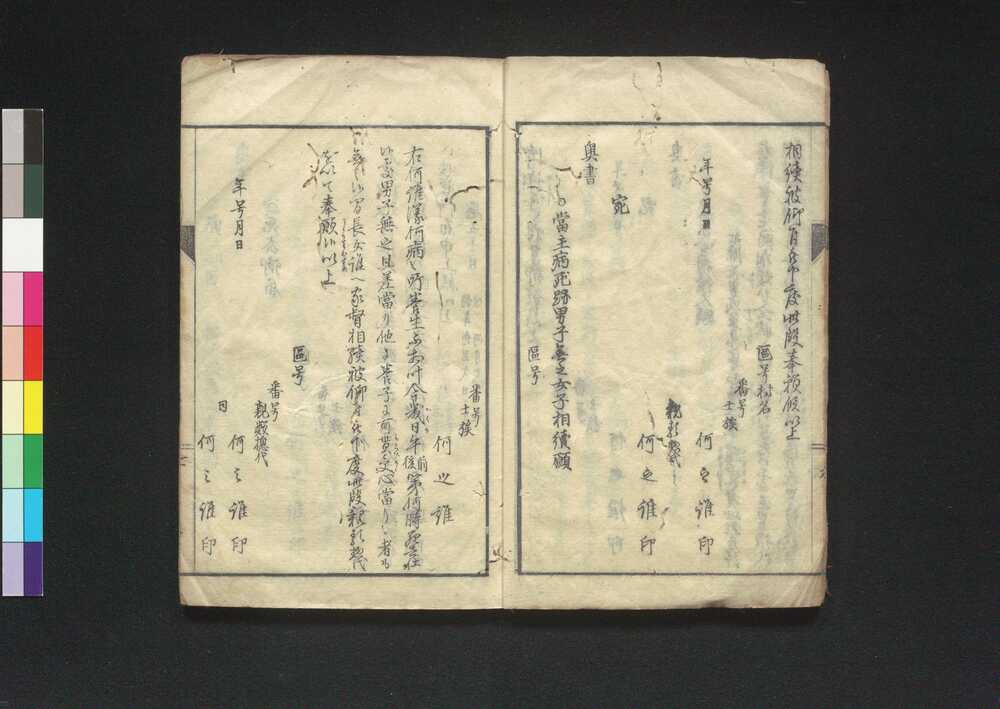 相續被仰付被下度此段奉願候以上
區号村名
番号
士族
年号月日
何之誰印
親類惣代
何之誰印
宛
奥書
〇當主病死跡男子無之女子相續願
區号
番号
士族
何之誰
右何誰儀何病ニ而養生不相叶今幾日午前後第何時死去仕
候處男子無之且差當り他ニ養子ニ可貰受心當り之者も
無之候間長女誰ヘ家督相續被仰付被下度此段親類惣代
を以て奉願候以上
區号
番号
親類惣代
年号月日
何之誰印
同
何之誰印